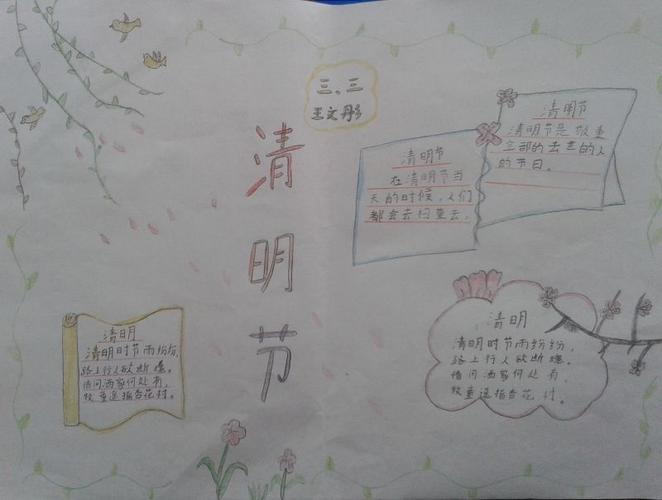 三、三
王文彤
清明节
清明节
在清明节当
天的时候，人们
都会去扫墓去。
清明节
清明节是敬重
的去世的人
的节日。
清明
清明时节雨纷纷，
路上行人欲断魂。
借问酒家何处有，
牧童遥指杏花村。
清明
清明时节雨纷纷，
路上行人欲断魂。
借问酒家何处有，
牧童遥指杏花村。